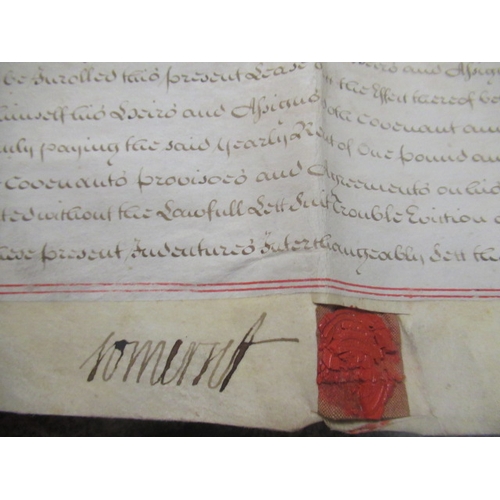 be Inrolled this present Lease Heirs and Assigns
himself his Heirs and Assigns Doth Covenant and
paying the said yearly Rent of One pound and
Covenants provisoes and Agreements on his
without the Lawfull Lett Suit Trouble Eviction
these present Indentures Interchangeably Sett the
Somerset